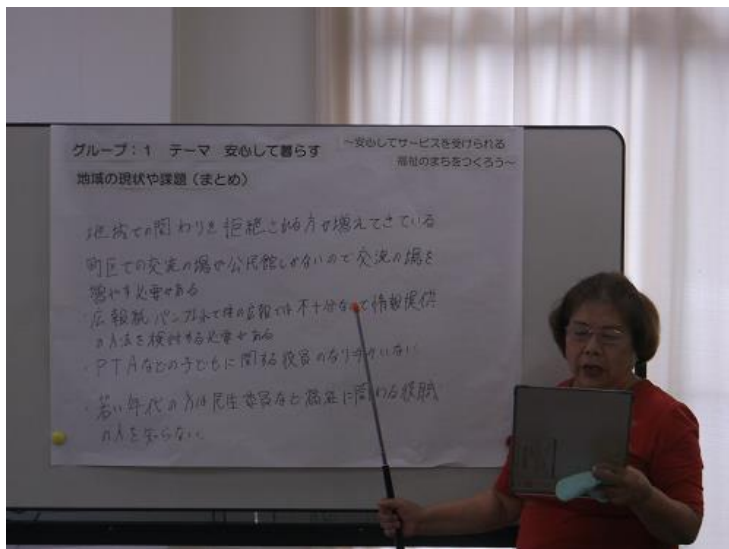 グループ：1　テーマ　安心して暮らす
～安心してサービスを受けられる
福祉のまちをつくろう～
地域の現状や課題（まとめ）
地域での関わりを拒絶される方が増えてきている
町区での交流の場が公民館しかないので交流の場を
増やす必要がある
・広報紙パンフレット等の広報では不十分なので情報提供
の方法を検討する必要がある
・PTAなどの子どもに関する役員のなり手がいない
・若い年代の方は民生委員など福祉に関わる役職
の方を知らない